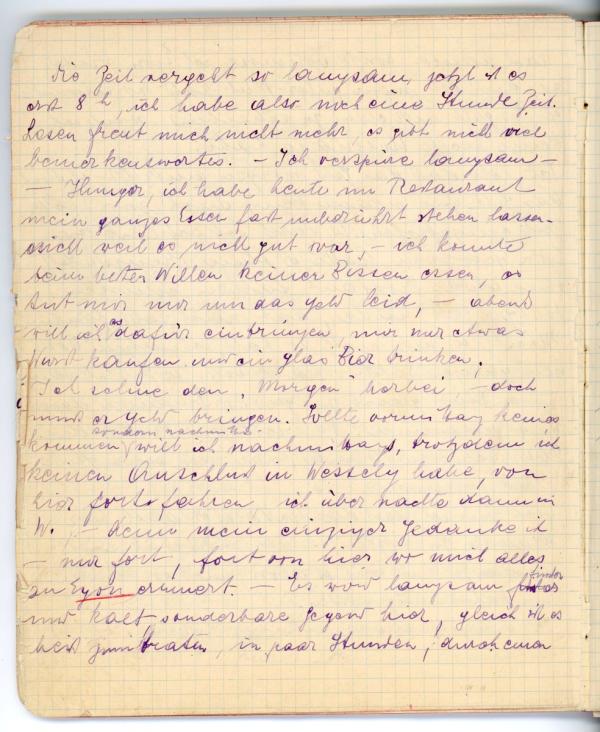 Die Zeit vergeht so langsam, jetzt ist es
erst 8 h, ich habe also noch eine Stunde Zeit.
Lesen freut mich nicht mehr, es gibt nicht viel
bemerkenswertes. – Ich verspüre langsam –
– Hunger, ich habe heute im Restaurant
mein ganzes Essen fast unberührt stehen lassen.
nicht weil es nicht gut war, – ich konnte
beim besten Willen keinen Bissen essen, es
tut mir nur um das Geld leid, – abends
will ich es dafür einbringen, mir nur etwas
Wurst kaufen und ein Glas Bier trinken.
Ich sehne den "Morgen" herbei – doch
muss er Geld bringen. Sollte vormittag keines
kommen sondern nachmittag will ich nachmittags, trotzdem ich
keinen Anschluß in Wessely habe, von
hier fortfahren, ich übernachte dann in
W. – denn mein einziger Gedanke ist
– nur fort, fort von hier wo mich alles
an Egon erinnert. – Es wird langsam finster
und kalt, sonderbare Gegend hier, gleich ist es
heiß zum braten, in paar Stunden, durch einen